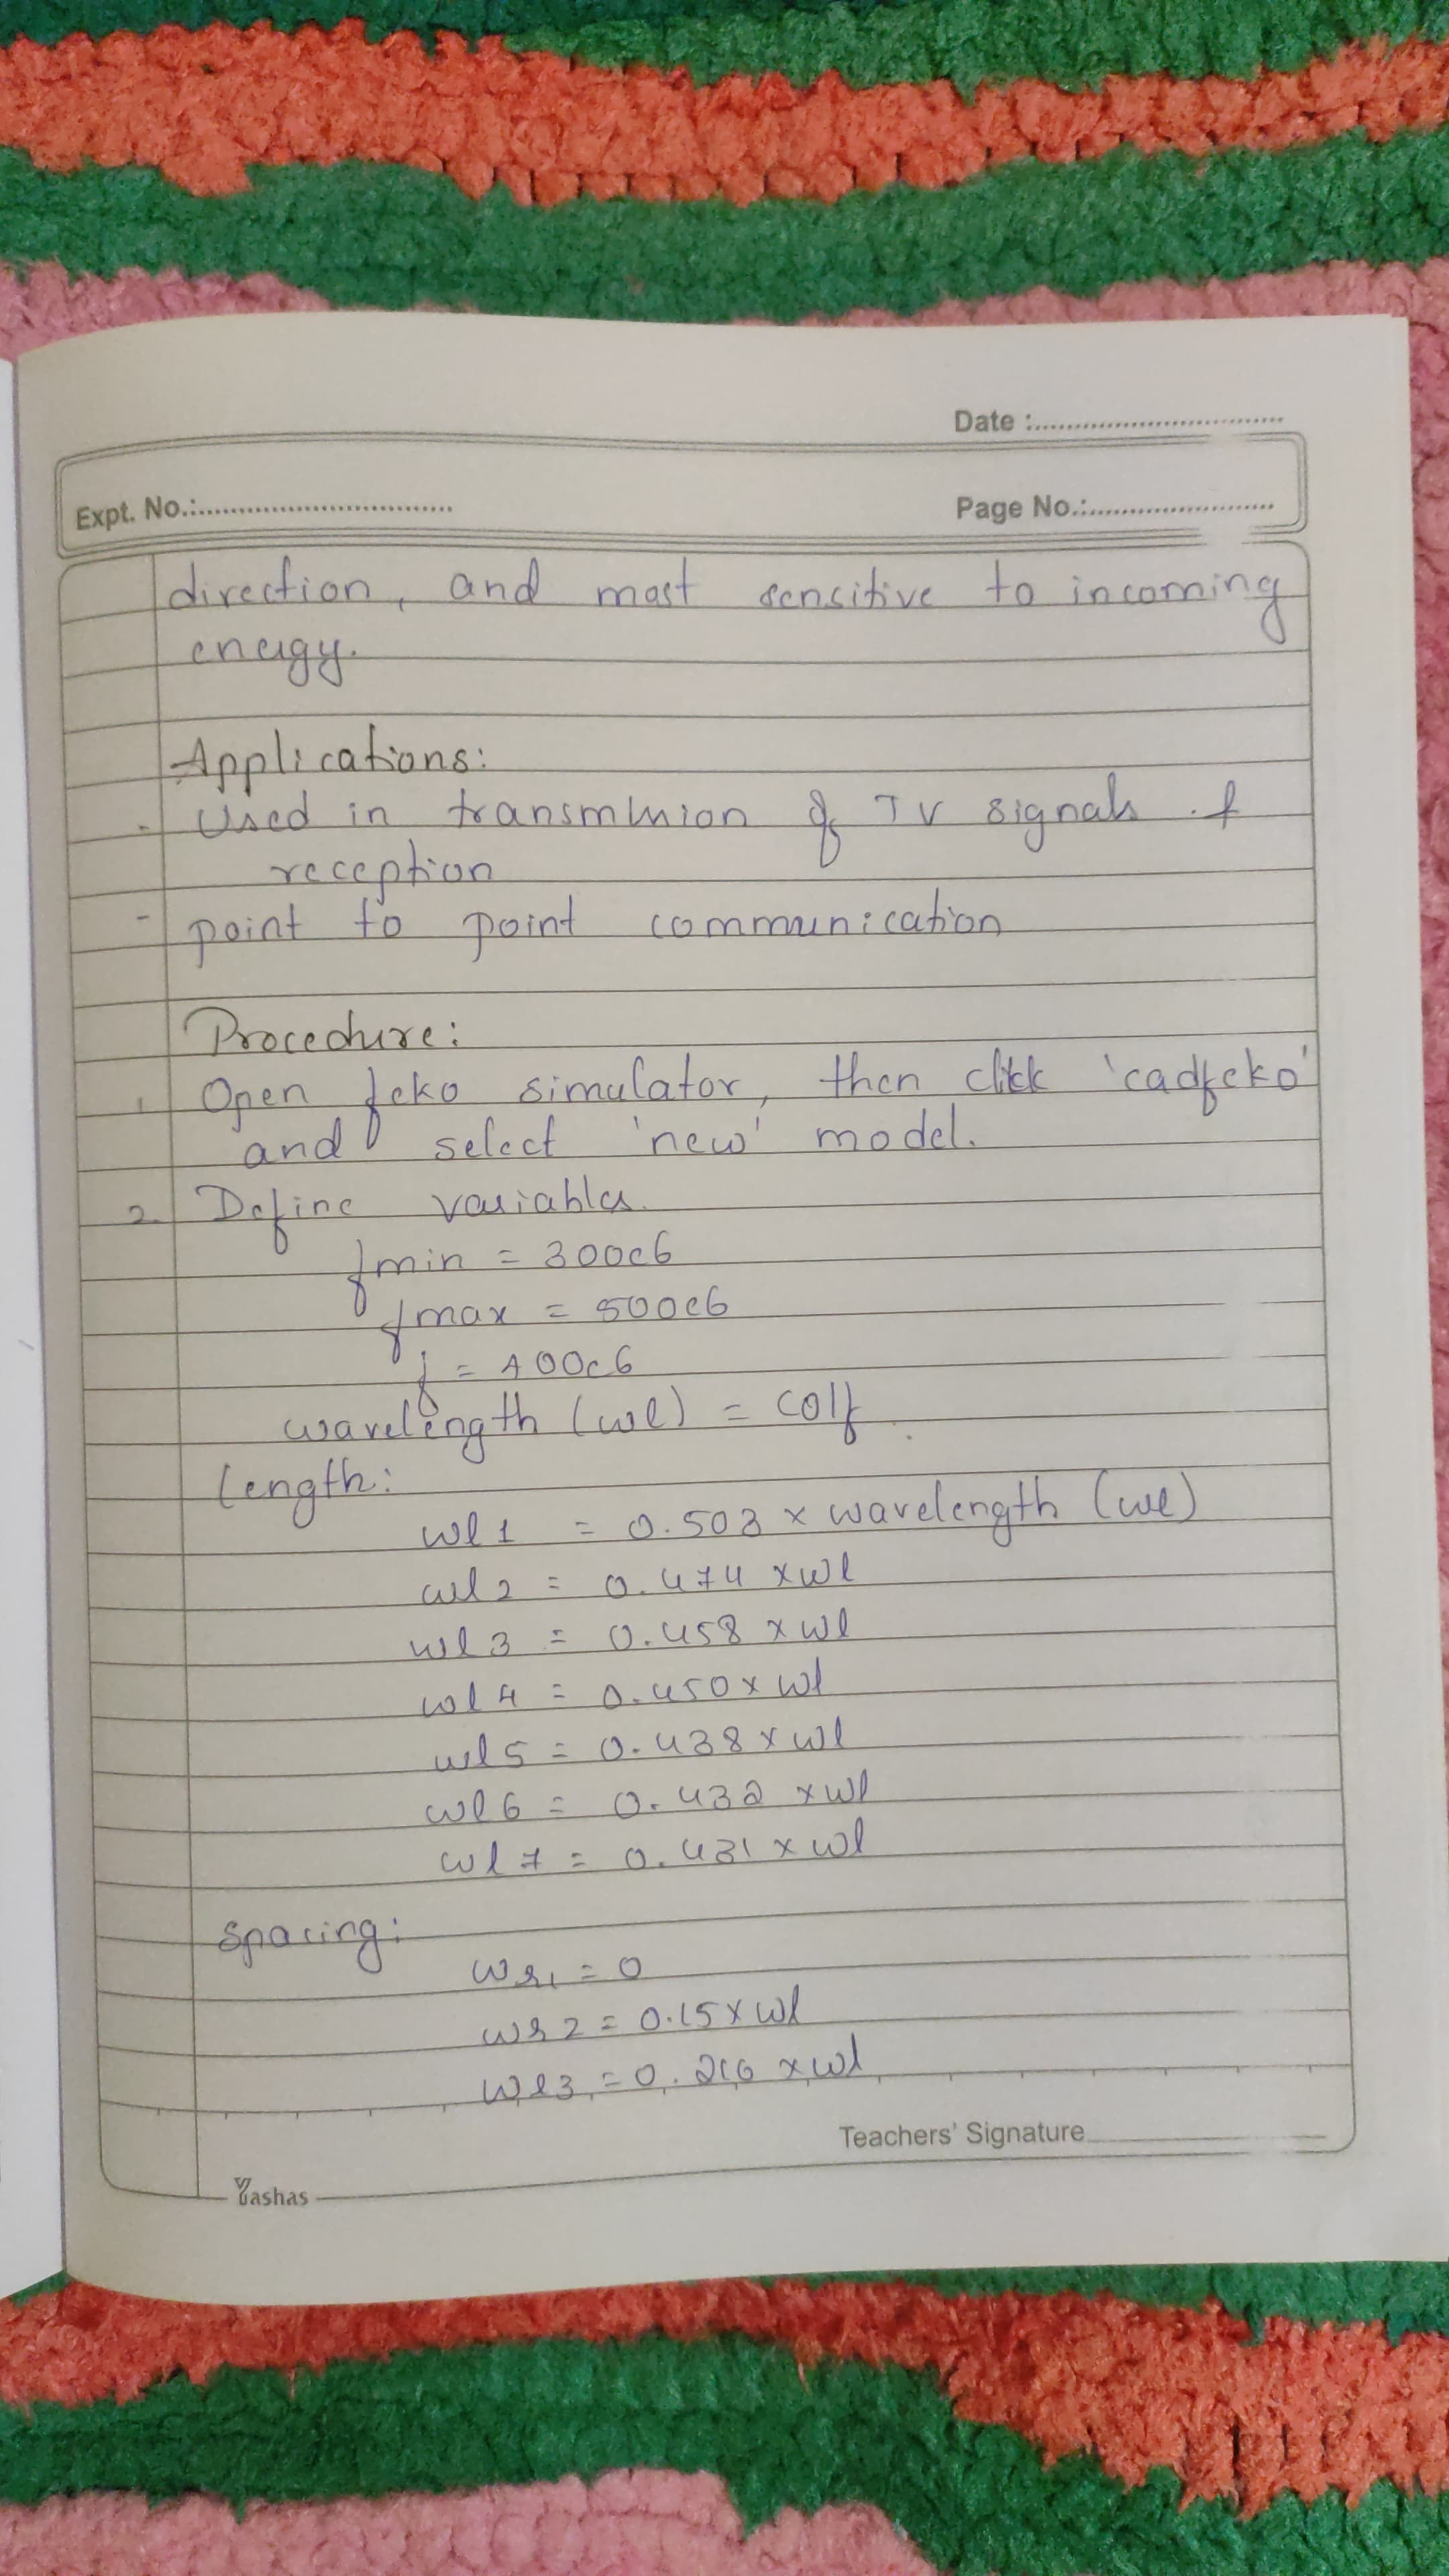 Date :
Expt. No.:
Page No.:
direction, and most sensitive to incoming
energy.
Applications:
- Used in transmission of TV signals. &
reception
- point to point communication
Procedure:
1. Open feko simulator, then click 'cadfeko'
and select 'new' model.
2. Define variables.
fmin = 300e6
fmax = 500e6
f = 400e6
wavelength (wl) = c0/f
length:
wl1 = 0.503 x wavelength (wl)
wl2 = 0.474 x wl
wl3 = 0.458 x wl
wl4 = 0.450 x wl
wl5 = 0.438 x wl
wl6 = 0.432 x wl
wl7 = 0.431 x wl
Spacing:
ws1 = 0
ws2 = 0.15 x wl
= 0.216 x wl
Teachers' Signature
Yashas